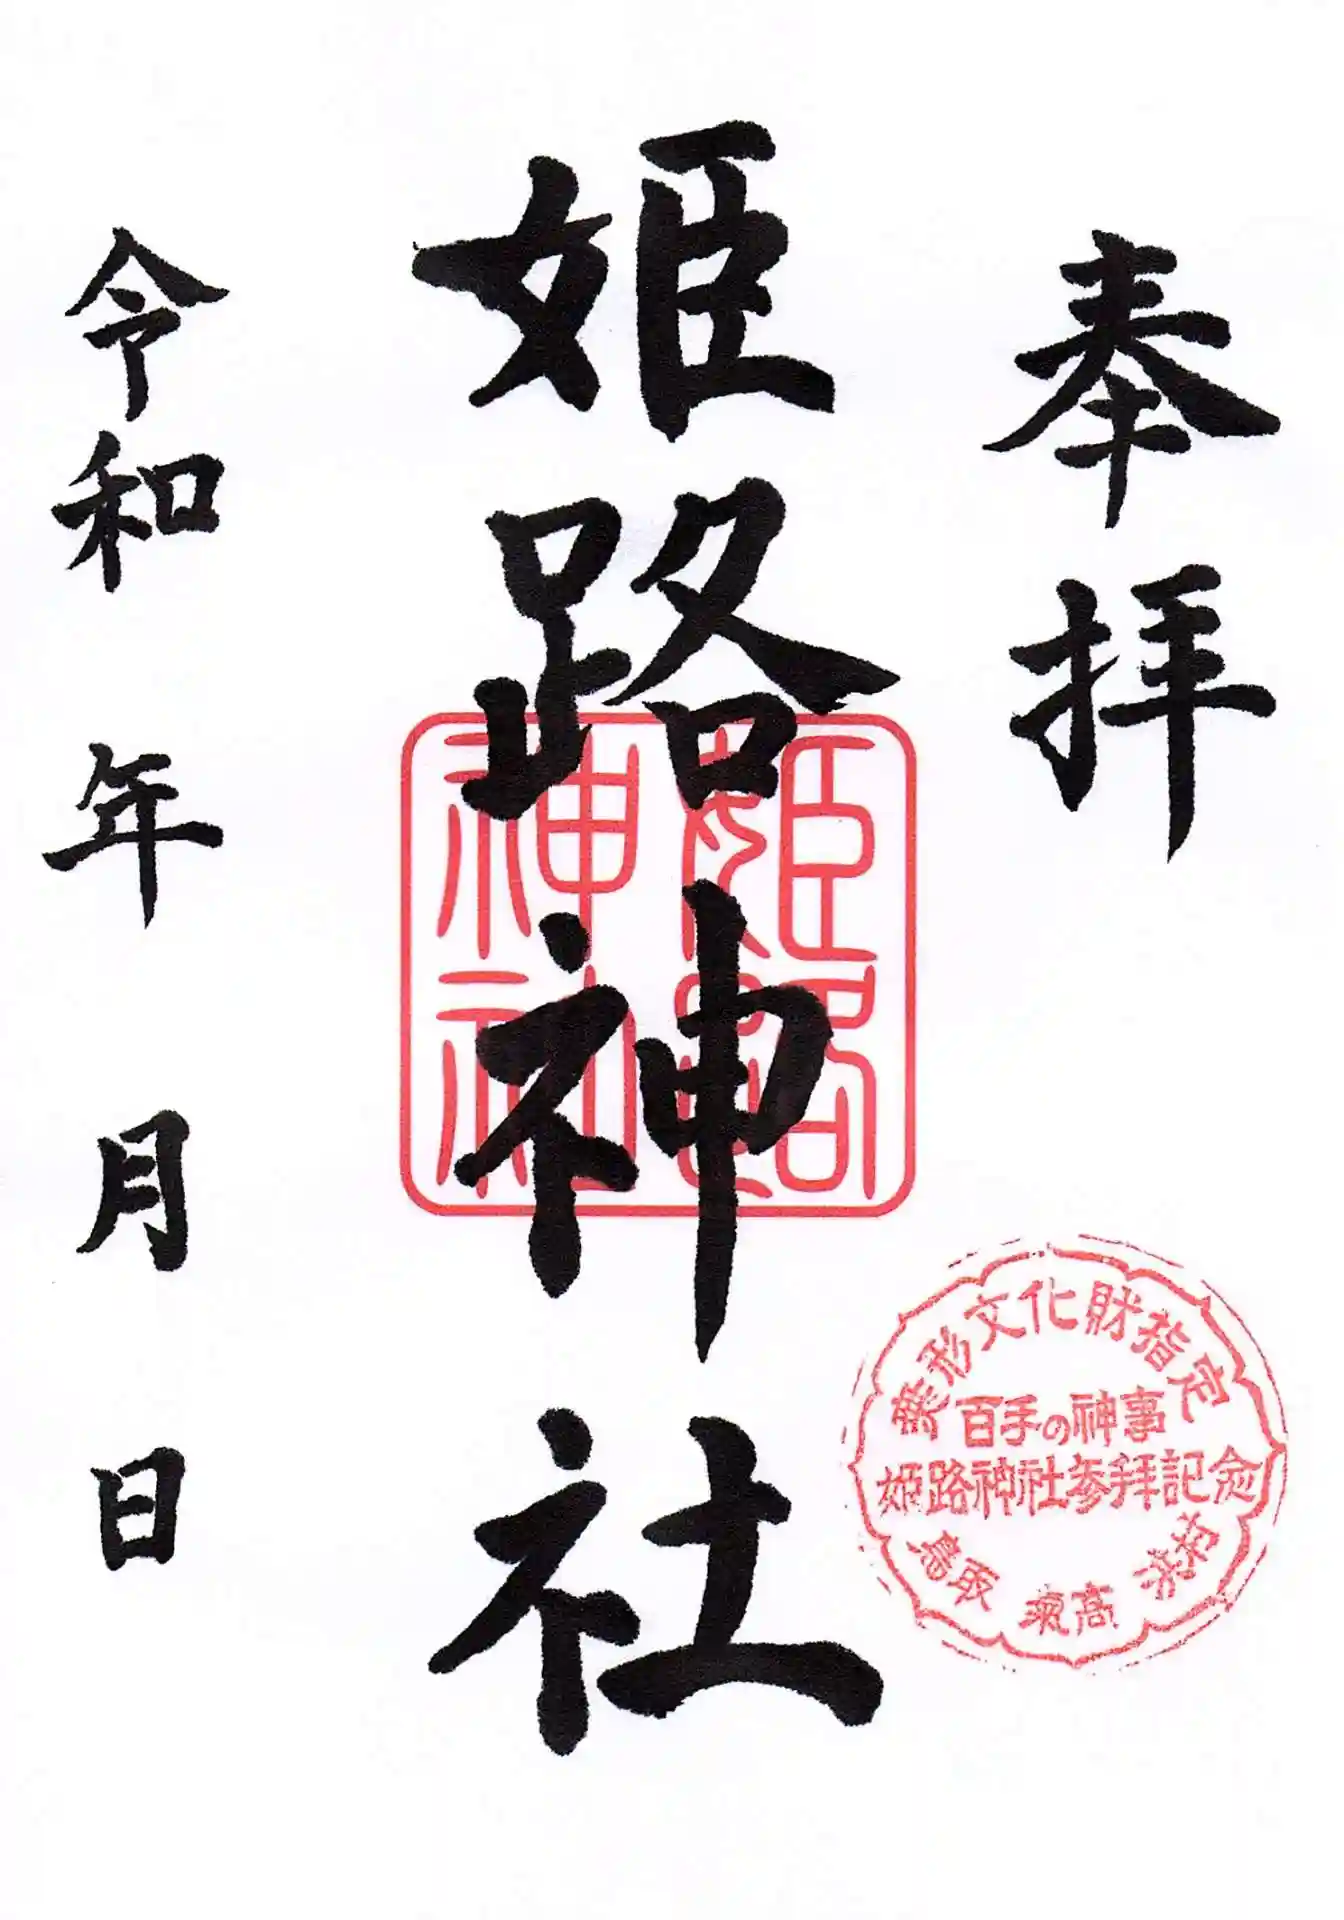 奉拝
姫路神社
姫路
神社
令和 年 月 日
無形文化財指定
百手の神事
姫路神社参拝記念
鳥取 東高